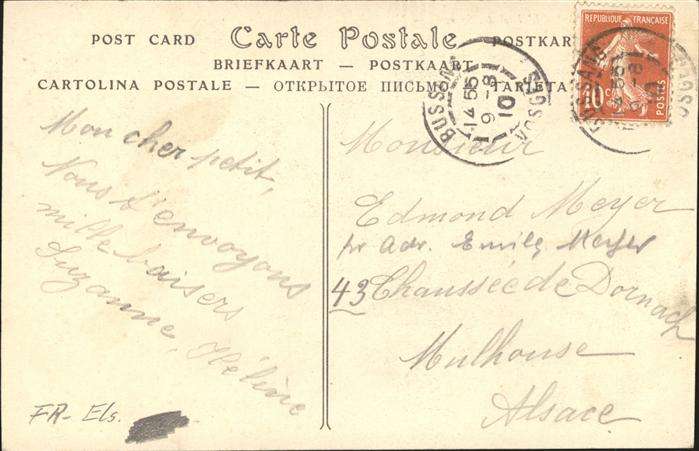 POST CARD Carte Postale POSTKARTE
BRIEFKAART — POSTKAART
CARTOLINA POSTALE — ОТКРЫТОЕ ПИСЬМО — TARJETA
RÉPUBLIQUE FRANÇAISE
10 c.
POSTES
BUSSANG
VOSGES
14 55
9 - 8
10
Mon cher petit,
Nous t'envoyons
mille baisers
Suzanne, Hélène
Monsieur
Edmond Meyer
pr Adr. Emile Meyer
43 Chaussée de Dornach
Mulhouse
Alsace
FR- Els.